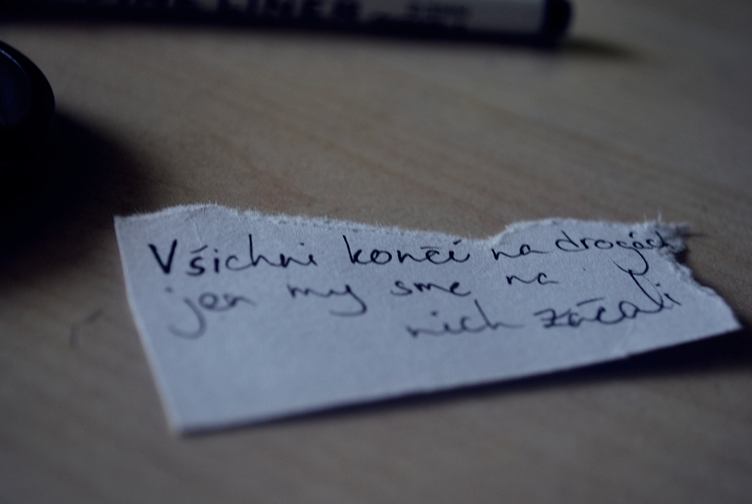 LINER
Všichni končí na drogách
jen my sme na
nich začali